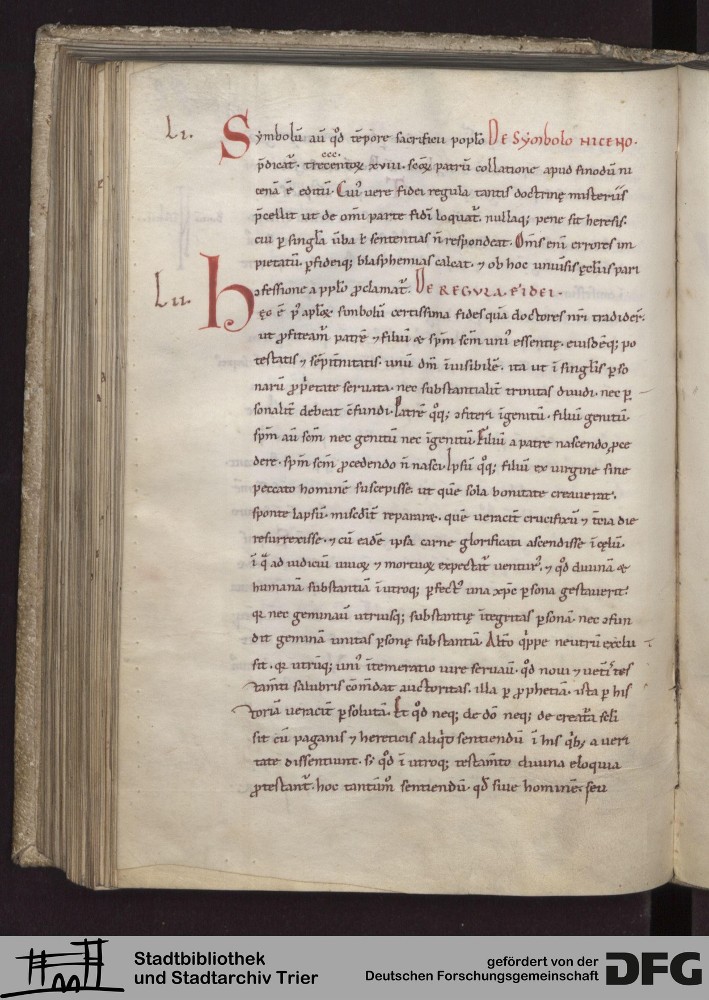 Lı. Symbolū aū q̊d tēpore sacrificii poplo DE SYMBOLO NICENO.
p̄dicať. trecentoꝝ ccc. xviii. scōꝝ patrū collatione apud sinodū ni
cenā ē editū. Cui' uere fidei regula tantis doctrinę misteriis
p̄cellit ut de omī parte fidī loquať. nullaq; pene sit heresis.
cui ꝑ singľa ūba ł sententias n̄ respondeat. Om̄s eni errores im
pietatū. ꝑfidięq; blasphemias calcat. ⁊ ob hoc uniūsis ęcľiis pari
Lıı. ↄfessione a pplo ꝓclamať. DE REGVLA FIDEI.
hęc ē p' aplōꝝ simbolū certissima fides quā doctores nr̄i tradider̄.
ut ꝓfiteam̄ patrē ⁊ filiū & spm̄ scm̄ uni' essentię. eiusdēq; po
testatis ⁊ sēpit̄nitatis. unū dm̄ īuisibilē. ita ut ī singľis ꝑso
narū ꝓprietate seruata. nec substantialit̄ trinitas diuidi. nec ꝑ
sonalit̄ debeat ↄfundi. Patrē q̊q; ↄfiteri īgenitū. filiū genitū.
spm̄ aū scm̄ nec genitū nec īgenitū. Filiū a patre nascendo ꝓce
dere. spm̄ scm̄ ꝓcedendo n̄ nasci. Ipsū q̊q; filiū ex uirgine sine
peccato hominē suscepisse. ut quē sola bonitate creauerat.
sponte lapsū. misc̄dit̄ repararet. quē ueracit̄ crucifixū ⁊ t̄cia die
resurrexisse. ⁊ cū eadē ipsa carne glorificata ascendisse ī cęlū.
ī q̊ ad iudiciū uiuoꝝ ⁊ mortuoꝝ expectať uentur'. ⁊ q̊d diuinā &
humanā substantiā ī utroq; ꝑfect' una xp̄c ꝑsona gestauerit.
q̄ nec geminauı̄ utriusq; substantię ītegritas ꝑsonā. nec ↄfun
dit geminā unitas ꝑsonę substantiā. Alt̄o q̊ppe neutrū exclu
sit. q̄ utrūq; uni' ītemeratio iure seruauı̄. q̊d noui ⁊ uet̄is tes
tam̄ti salubris cōm̄dat auctoritas. illa ꝑ ꝓphetiā. ista ꝑ his
toriā ueracit̄ ꝑsoluta. Et q̊d neq; de dō neq; de creat̄a sęli
sit cū paganis ⁊ hereticis aliq̊d sentiendū ī his q̊b; a ueri
tate dissentiunt. s; q̊d ī utroq; testam̄to diuina eloquia
ꝓtestanť. hoc tantūm̊ sentiendū. q̊d siue hominē. seu
Stadtbibliothek
und Stadtarchiv Trier
gefördert von der
Deutschen Forschungsgemeinschaft DFG